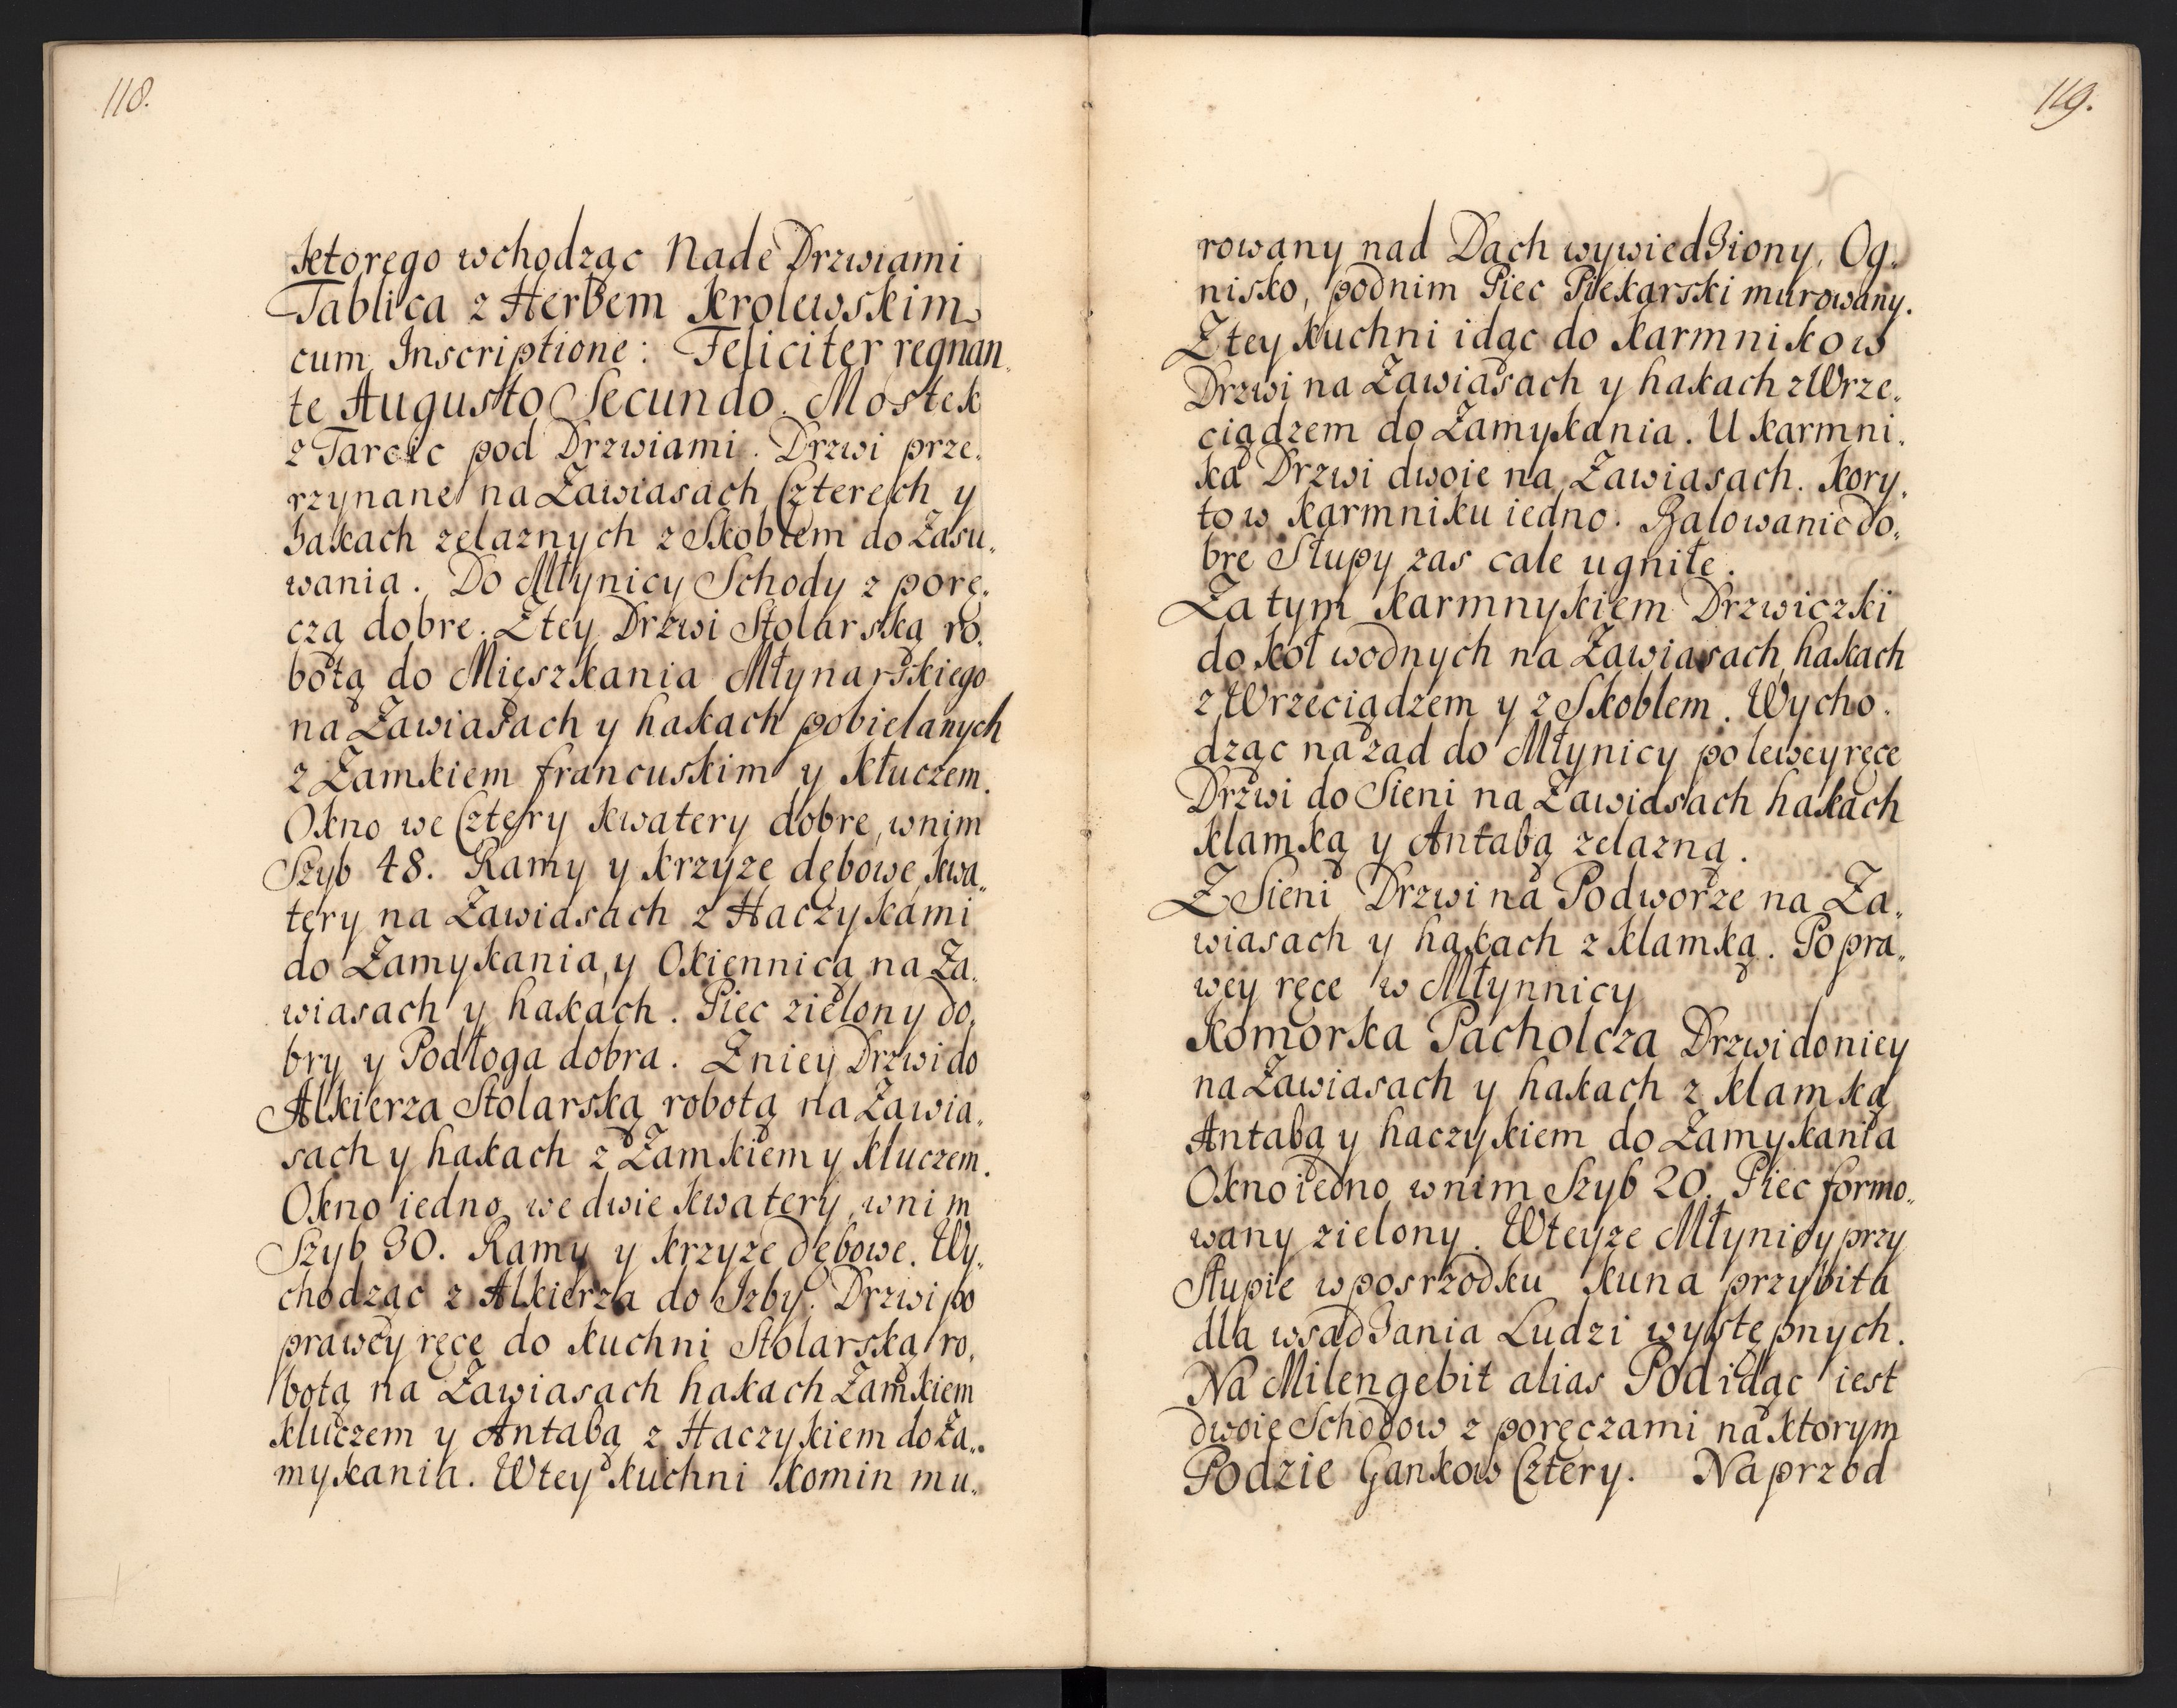 118.
ktorego wchodząc Nade Drzwiami
Tablica z Herbem Krolewskim
cum Inscriptione: Feliciter regnan„
te Augusto Secundo. Mostek
z Tarcic pod Drzwiami. Drzwi prze„
rzynane na Zawiasach Czterech y
hakach zelaznych z Skoblem do Zasu„
wania. Do Młynicy Schody z porę„
czą dobre. Z tey Drzwi Stolarską ro„
botą do Mięszkania Młynarskiego
na Zawiasach y hakach pobielanych
z Zamkiem francuskim y Kłuczem.
Okno we Cztery kwatery dobre, wnim
Szyb 48. Ramy y krzyze dębowe, kwa„
tery na Zawiasach z Haczykami
do Zamykania, y Okiennicą na Za„
wiasach y hakach. Piec zielony do„
bry y Podłoga dobra. Zniey Drzwi do
Alkierza Stolarską robotą na Zawia„
sach y hakach z Zamkiem y kluczem.
Okno iedno we dwie kwatery, wnim
Szyb 30. Ramy y krzyze dębowe. Wy„
chodząc z Alkierza do Izby. Drzwi po
prawey ręce do kuchni Stolarską ro„
botą na Zawiasach hakach Zamkiem
kluczem y Antabą z Haczykiem do Za„
mykania. Wtey kuchni komin mu„
119.
rowany nad Dach wywiedziony, Og„
nisko, podnim Piec Piekarski murowany.
Ztey kuchni idąc do karmnikow
Drzwi na Zawiasach y hakach z Wrze„
ciądzem do Zamykania. U karmni„
ka Drzwi dwoie na Zawiasach. Kory„
to w karmniku iedno. Balowanie do„
bre Słupy zas cale ugniłe.
Za tym karmnykiem Drzwiczki
do koł wodnych na Zawiasach, hakach
z Wrzeciądzem y z Skoblem. Wycho„
dząc nazad do Młynicy po lewey ręce
Drzwi do Sieni na Zawiasach hakach
klamką y Antabą zelazną.
Z Sieni Drzwi na Podworze na Za„
wiasach y hakach z klamką. Po pra„
wey ręce w Młynnicy
Komorka Pacholcza Drzwi doniey
na Zawiasach y hakach z klamką
Antabą y haczykiem do Zamykania
Okno iedno wnim Szyb 20. Piec formo„
wany zielony. Wteyze Młynicy przy
Słupie wposrzodku kuna przybita
dla wsadzania Ludzi występnych.
Na Milengebit alias Pod idąc iest
dwoie Schodow z poręczami na ktorym
Podzie Gankow Cztery. Naprzod